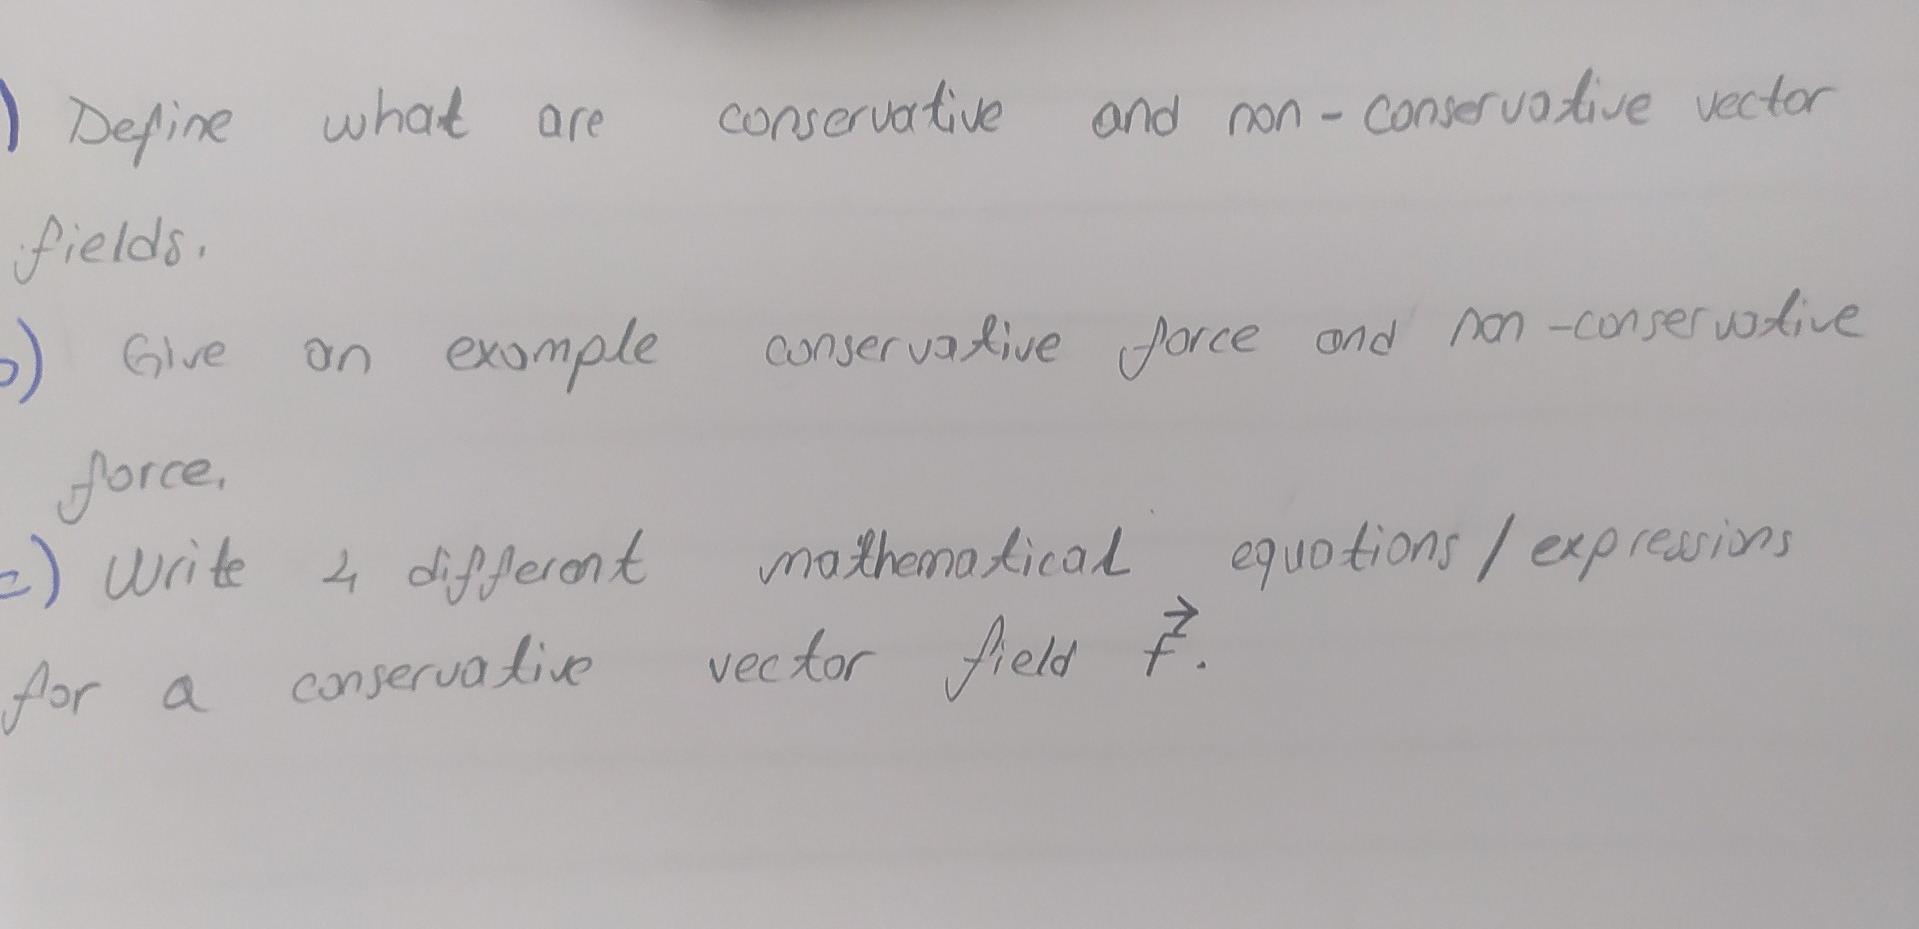 ) Define what are conservative and non-conservative vector
fields.
b) Give an example conservative force and non-conservative
force.
c) Write 4 different mathematical equations / expressions
for a conservative vector field F⃗.